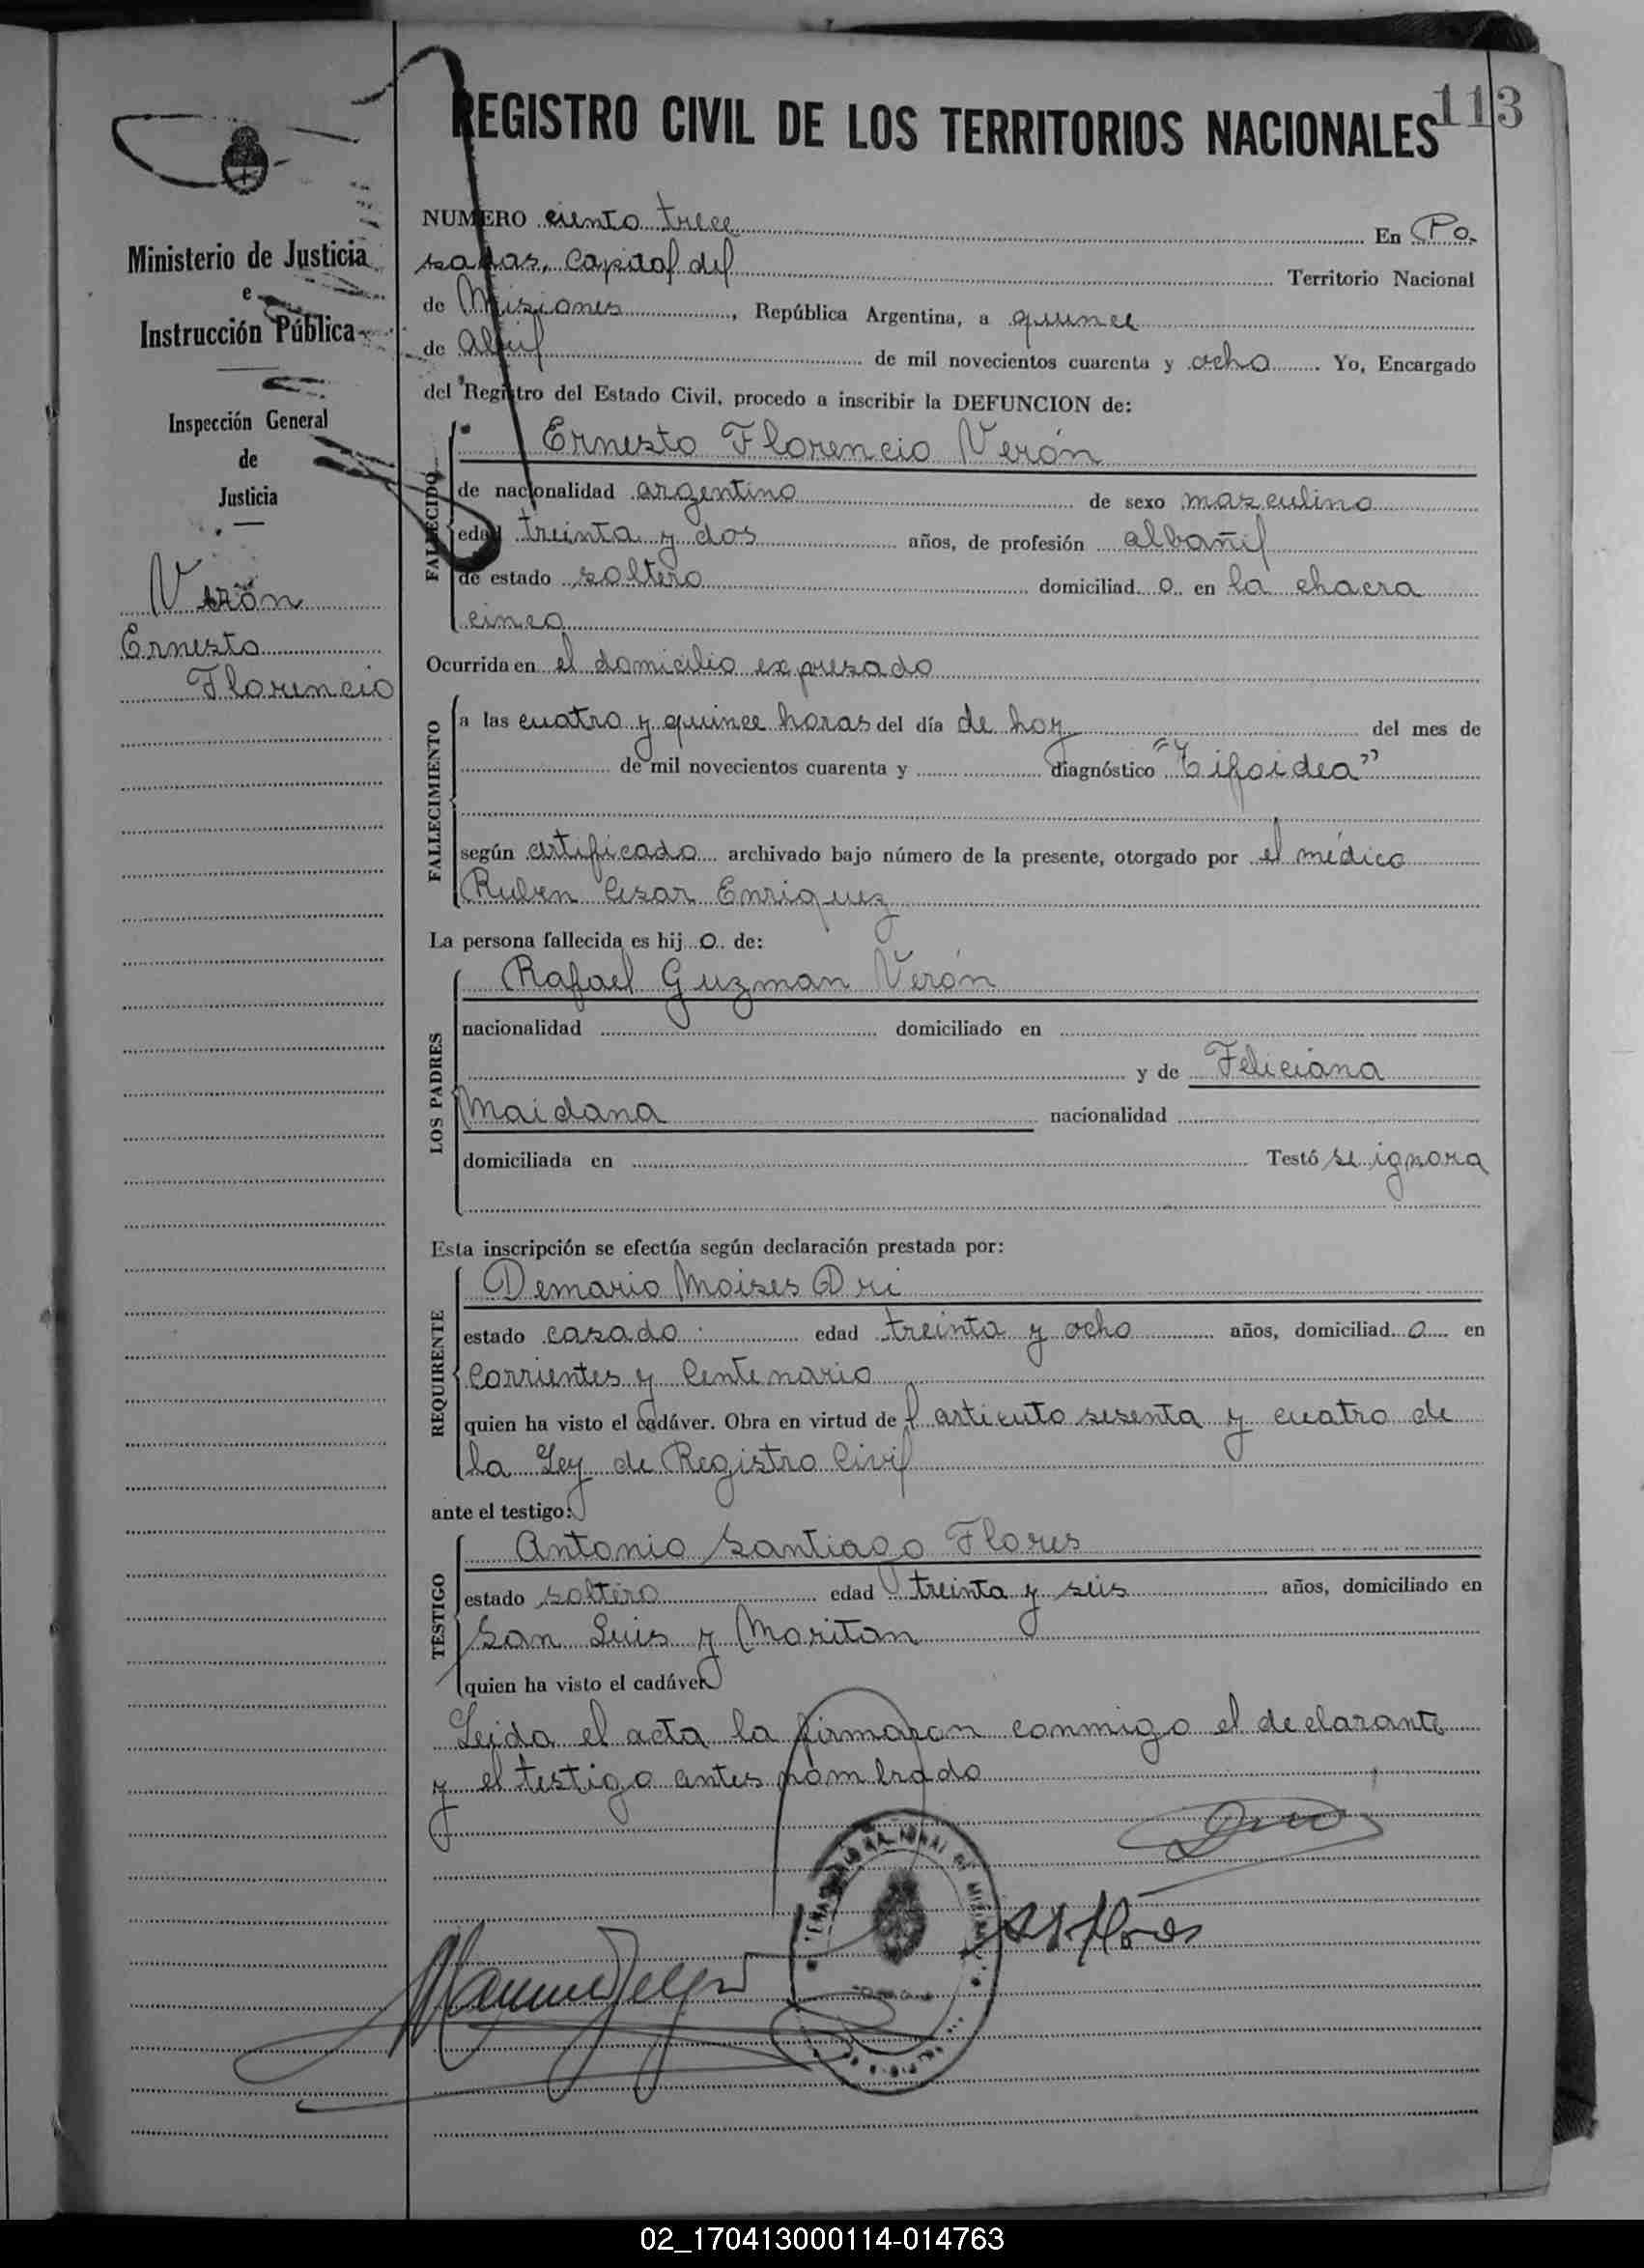 113
REGISTRO CIVIL DE LOS TERRITORIOS NACIONALES
Ministerio de Justicia
e
Instrucción Pública
Inspección General
de
Justicia
Verón
Ernesto
Florencio
NUMERO ciento trece En Po-
sadas, Capital del Territorio Nacional
de Misiones, República Argentina, a quince
de Abril de mil novecientos cuarenta y ocho Yo, Encargado
del Registro del Estado Civil, procedo a inscribir la DEFUNCION de:
FALLECIDO
Ernesto Florencio Verón
de nacionalidad argentino de sexo masculino
edad treinta y dos años, de profesión albañil
de estado soltero domiciliad o en la chacra
cinco
Ocurrida en el domicilio expresado
FALLECIMIENTO
a las cuatro y quince horas del día de hoy del mes de
de mil novecientos cuarenta y diagnóstico "Tifoidea"
según certificado archivado bajo número de la presente, otorgado por el médico
Ruben Cesar Enriquez
La persona fallecida es hij o de:
LOS PADRES
Rafael Guzman Verón
nacionalidad domiciliado en
y de Feliciana
Maidana nacionalidad
domiciliada en Testó se ignora
Esta inscripción se efectúa según declaración prestada por:
REQUIRENTE
Demario Moises Dri
estado casado edad treinta y ocho años, domiciliad o en
Corrientes y Centenario
quien ha visto el cadáver. Obra en virtud de l articuto sesenta y cuatro de
la Ley de Registro Civil
ante el testigo:
TESTIGO
Antonio Santiago Flores
estado soltero edad treinta y seis años, domiciliado en
San Luis y Moritan
quien ha visto el cadáver
Leida el acta la firmaron conmigo el declarante
y el testigo antes nombrado
Flores
02_170413000114-014763